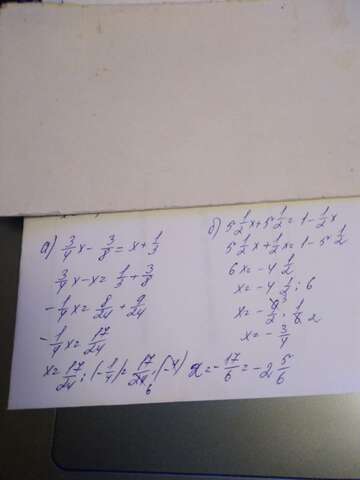 а) 3/4 x - 3/8 = x + 1/3
3/4 x - x = 1/3 + 3/8
- 1/4 x = 8/24 + 9/24
- 1/4 x = 17/24
x = 17/24 : (- 1/4) = 17/24 · (-4) x = - 17/6 = -2 5/6
6
б) 5 1/2 x + 5 1/2 = 1 - 1/2 x
5 1/2 x + 1/2 x = 1 - 5 1/2
6x = -4 1/2
x = -4 1/2 : 6
x = - 9/2 · 1/6
3
2
x = - 3/4